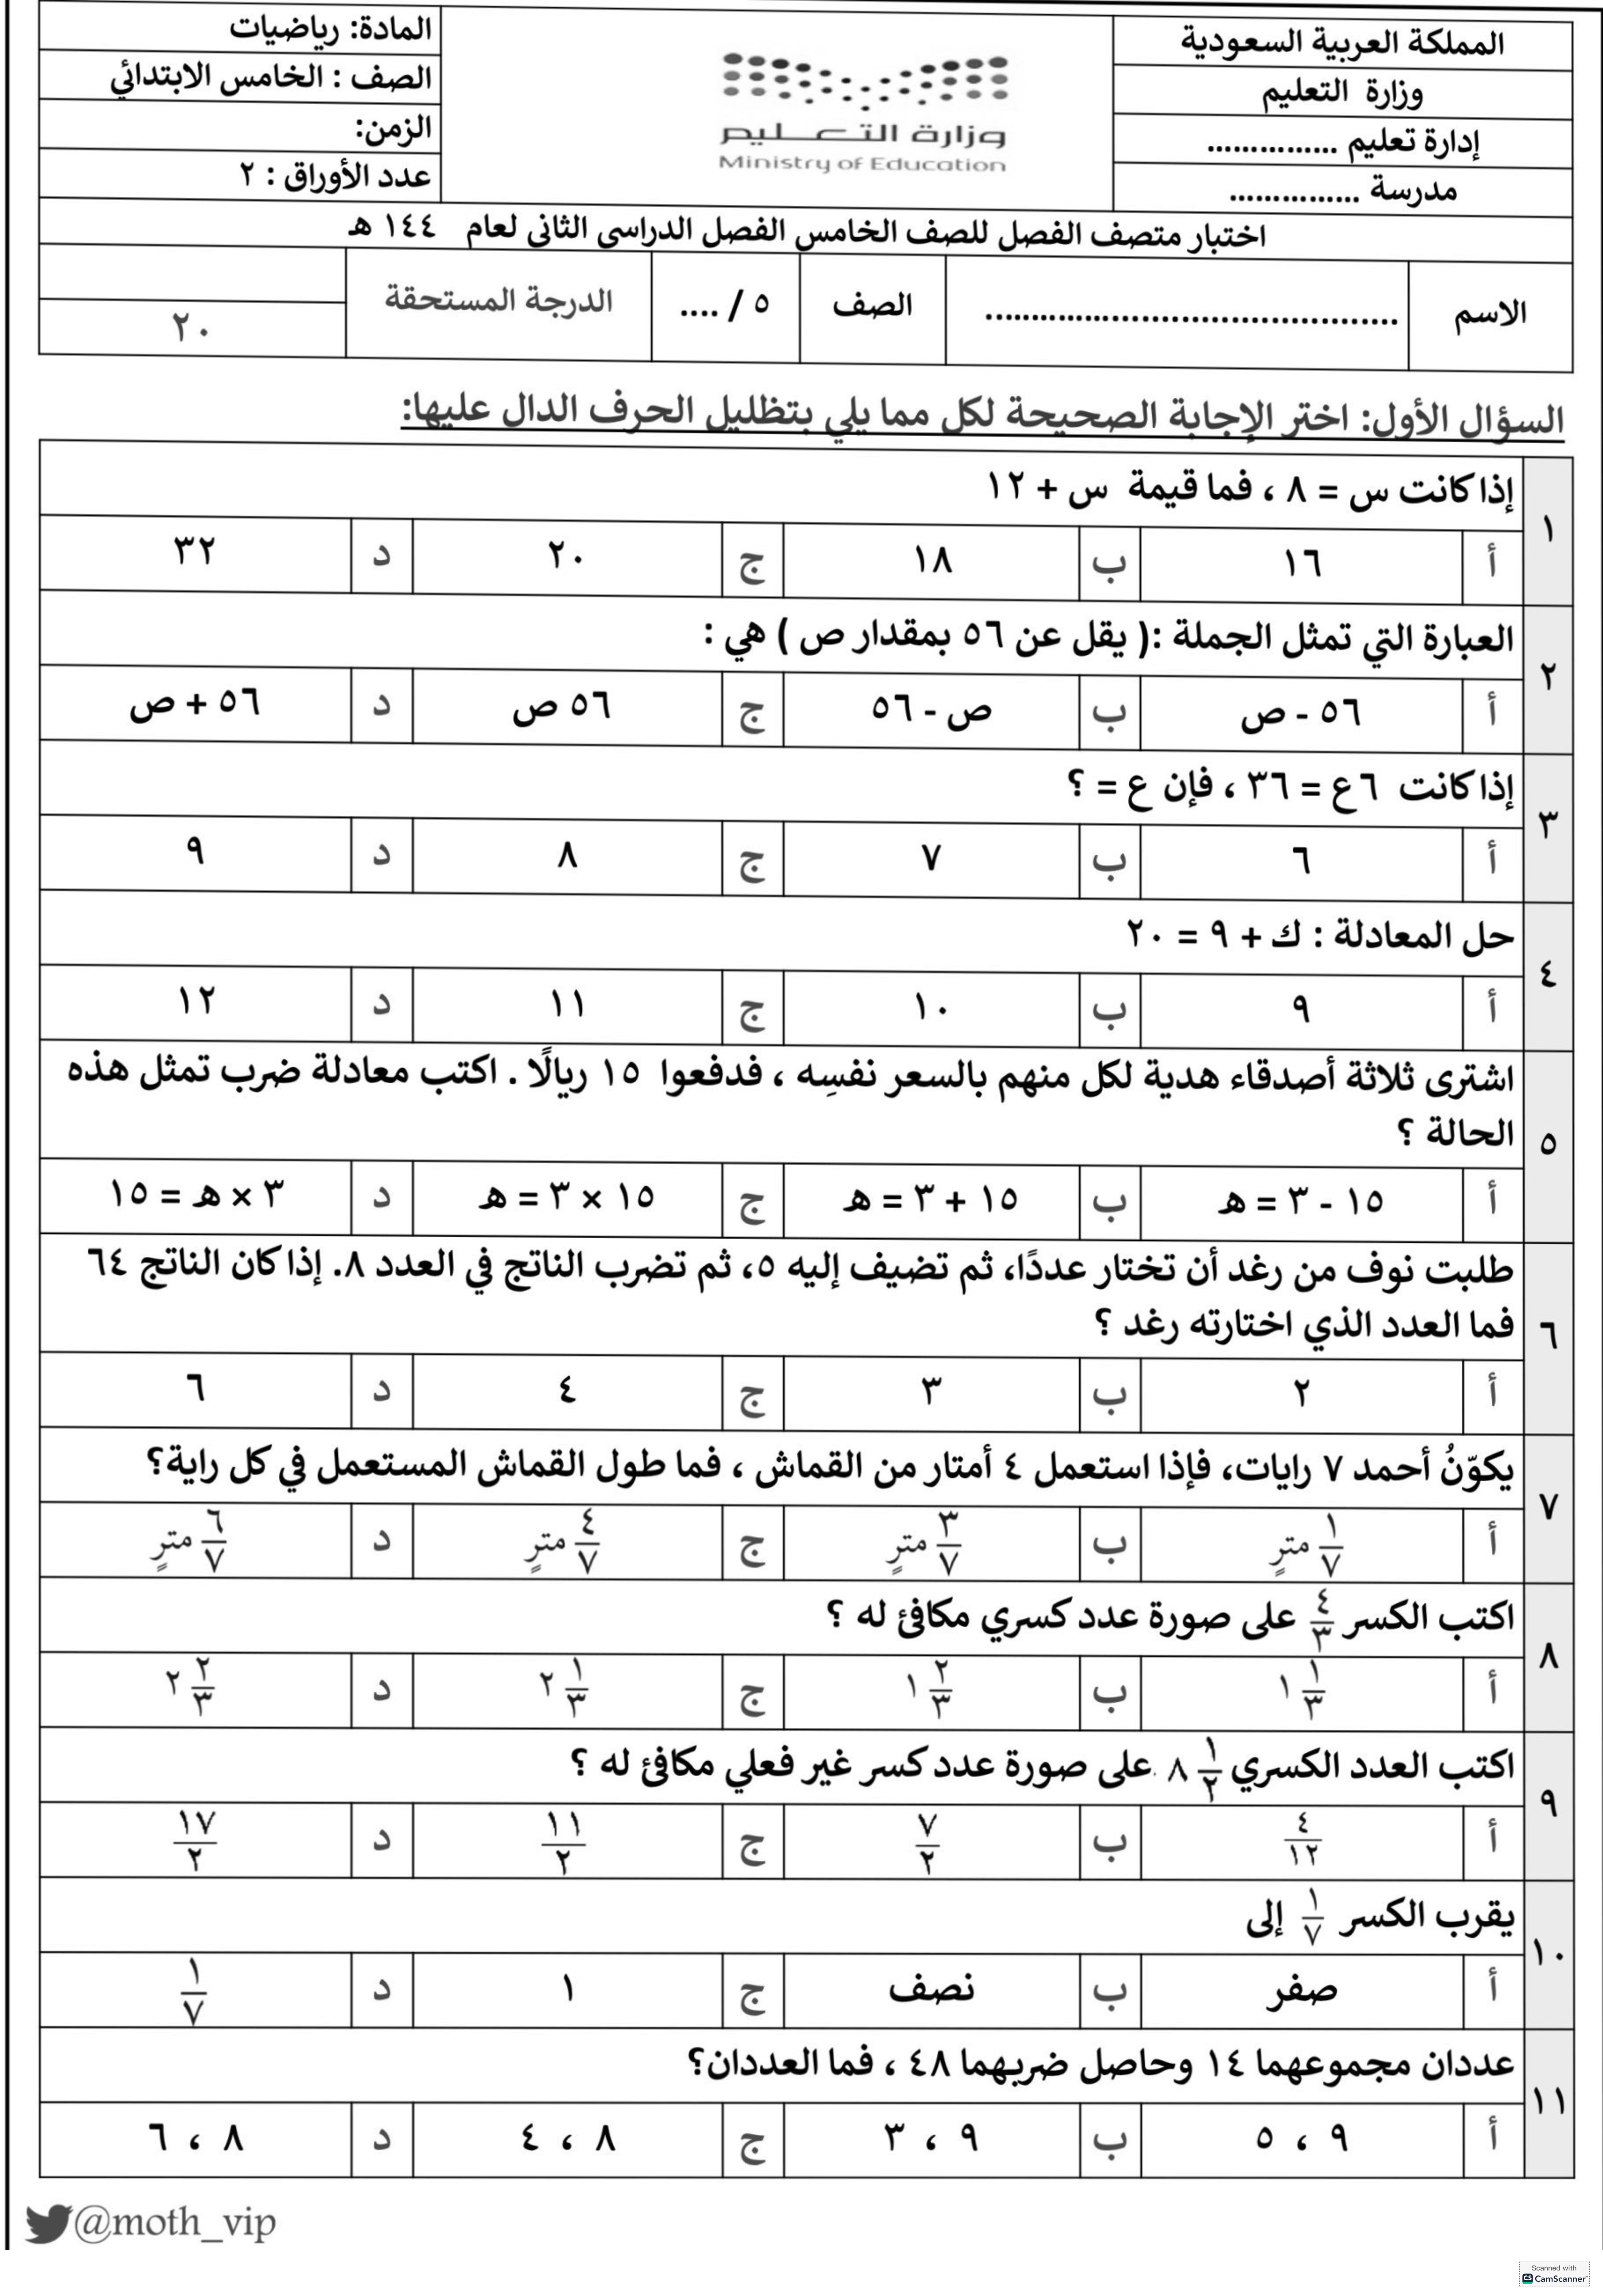 المملكة العربية السعودية
وزارة التعليم
إدارة تعليم ...............
مدرسة ...............
وزارة التعليم
Ministry of Education
المادة: رياضيات
الصف : الخامس الابتدائي
الزمن:
عدد الأوراق : ٢
اختبار متصف الفصل للصف الخامس الفصل الدراسي الثاني لعام ١٤٤ هـ
الاسم ............................................ الصف ٥ / .... الدرجة المستحقة ٢٠
السؤال الأول: اختر الإجابة الصحيحة لكل مما يلي بتظليل الحرف الدال عليها:
١ إذا كانت س = ٨ ، فما قيمة س + ١٢
أ ١٦ ب ١٨ ج ٢٠ د ٣٢
٢ العبارة التي تمثل الجملة :( يقل عن ٥٦ بمقدار ص ) هي :
أ ٥٦ - ص ب ص - ٥٦ ج ٥٦ ص د ٥٦ + ص
٣ إذا كانت ٦ع = ٣٦ ، فإن ع = ؟
أ ٦ ب ٧ ج ٨ د ٩
٤ حل المعادلة : ك + ٩ = ٢٠
أ ٩ ب ١٠ ج ١١ د ١٢
٥ اشترى ثلاثة أصدقاء هدية لكل منهم بالسعر نفسِه ، فدفعوا ١٥ ريالًا . اكتب معادلة ضرب تمثل هذه
الحالة ؟
أ ١٥ - ٣ = هـ ب ١٥ + ٣ = هـ ج ١٥ × ٣ = هـ د ٣ × هـ = ١٥
٦ طلبت نوف من رغد أن تختار عددًا، ثم تضيف إليه ٥، ثم تضرب الناتج في العدد ٨. إذا كان الناتج ٦٤
فما العدد الذي اختارته رغد ؟
أ ٢ ب ٣ ج ٤ د ٦
٧ يكوّنُ أحمد ٧ رايات، فإذا استعمل ٤ أمتار من القماش ، فما طول القماش المستعمل في كل راية؟
أ ١/٧ مترٍ ب ٣/٧ مترٍ ج ٤/٧ مترٍ د ٦/٧ مترٍ
٨ اكتب الكسر ٤/٣ على صورة عدد كسري مكافئ له ؟
أ ١/٣ ١ ب ٢/٣ ١ ج ١/٣ ٢ د ٢/٣ ٢
٩ اكتب العدد الكسري ١/٢ ٨ على صورة عدد كسر غير فعلي مكافئ له ؟
أ ٤/١٢ ب ٧/٢ ج ١١/٢ د ١٧/٢
١٠ يقرب الكسر ١/٧ إلى
أ صفر ب نصف ج ١ د ١/٧
١١ عددان مجموعهما ١٤ وحاصل ضربهما ٤٨ ، فما العددان؟
أ ٩ ، ٥ ب ٩ ، ٣ ج ٨ ، ٤ د ٨ ، ٦
@moth_vip
Scanned with
CS CamScanner